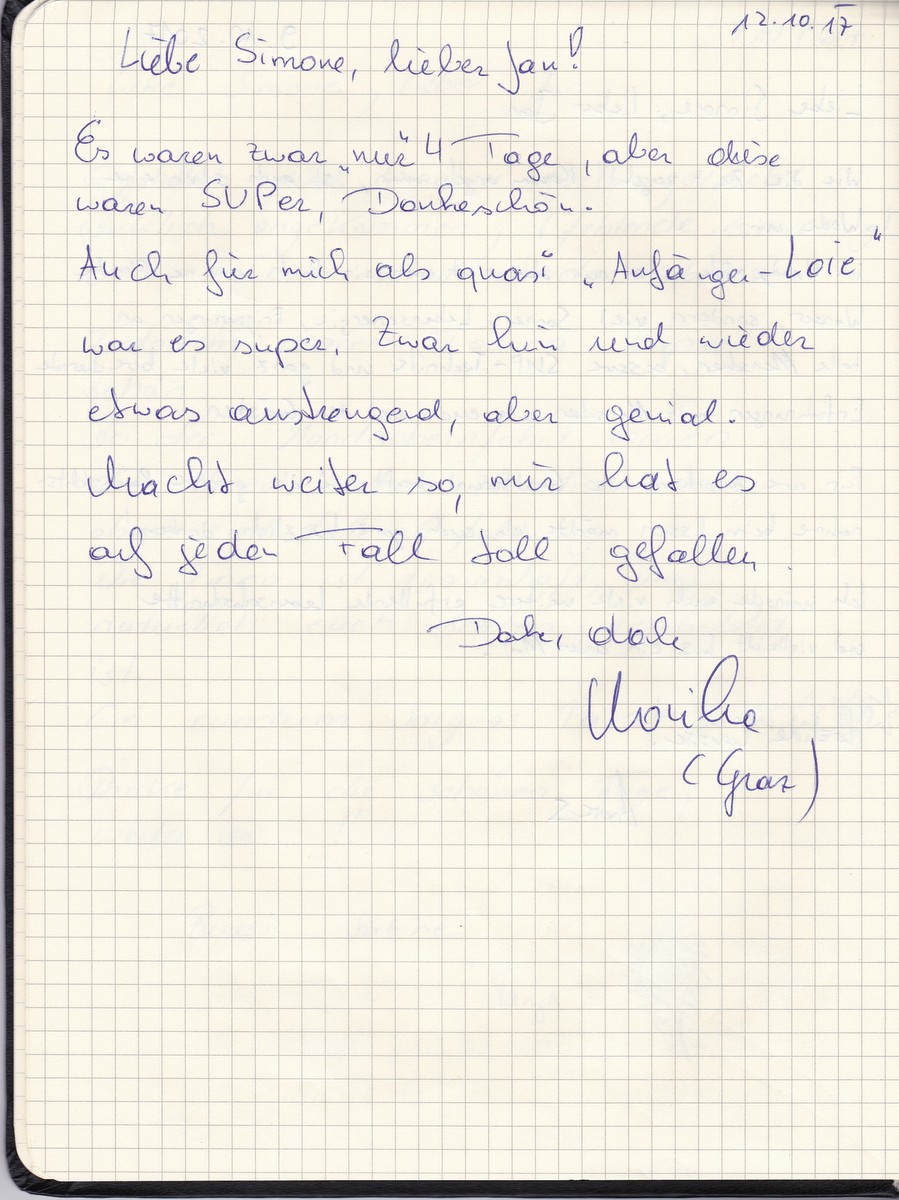 12.10.17
Liebe Simone, lieber Jan!
Es waren zwar „nur“ 4 Tage, aber diese
waren SUPer, Dankeschön.
Auch für mich als quasi „Anfänger-Loie“
war es super. Zwar hin und wieder
etwas anstrengend, aber genial.
Macht weiter so, mir hat es
auf jeden Fall toll gefallen.
(Graz)